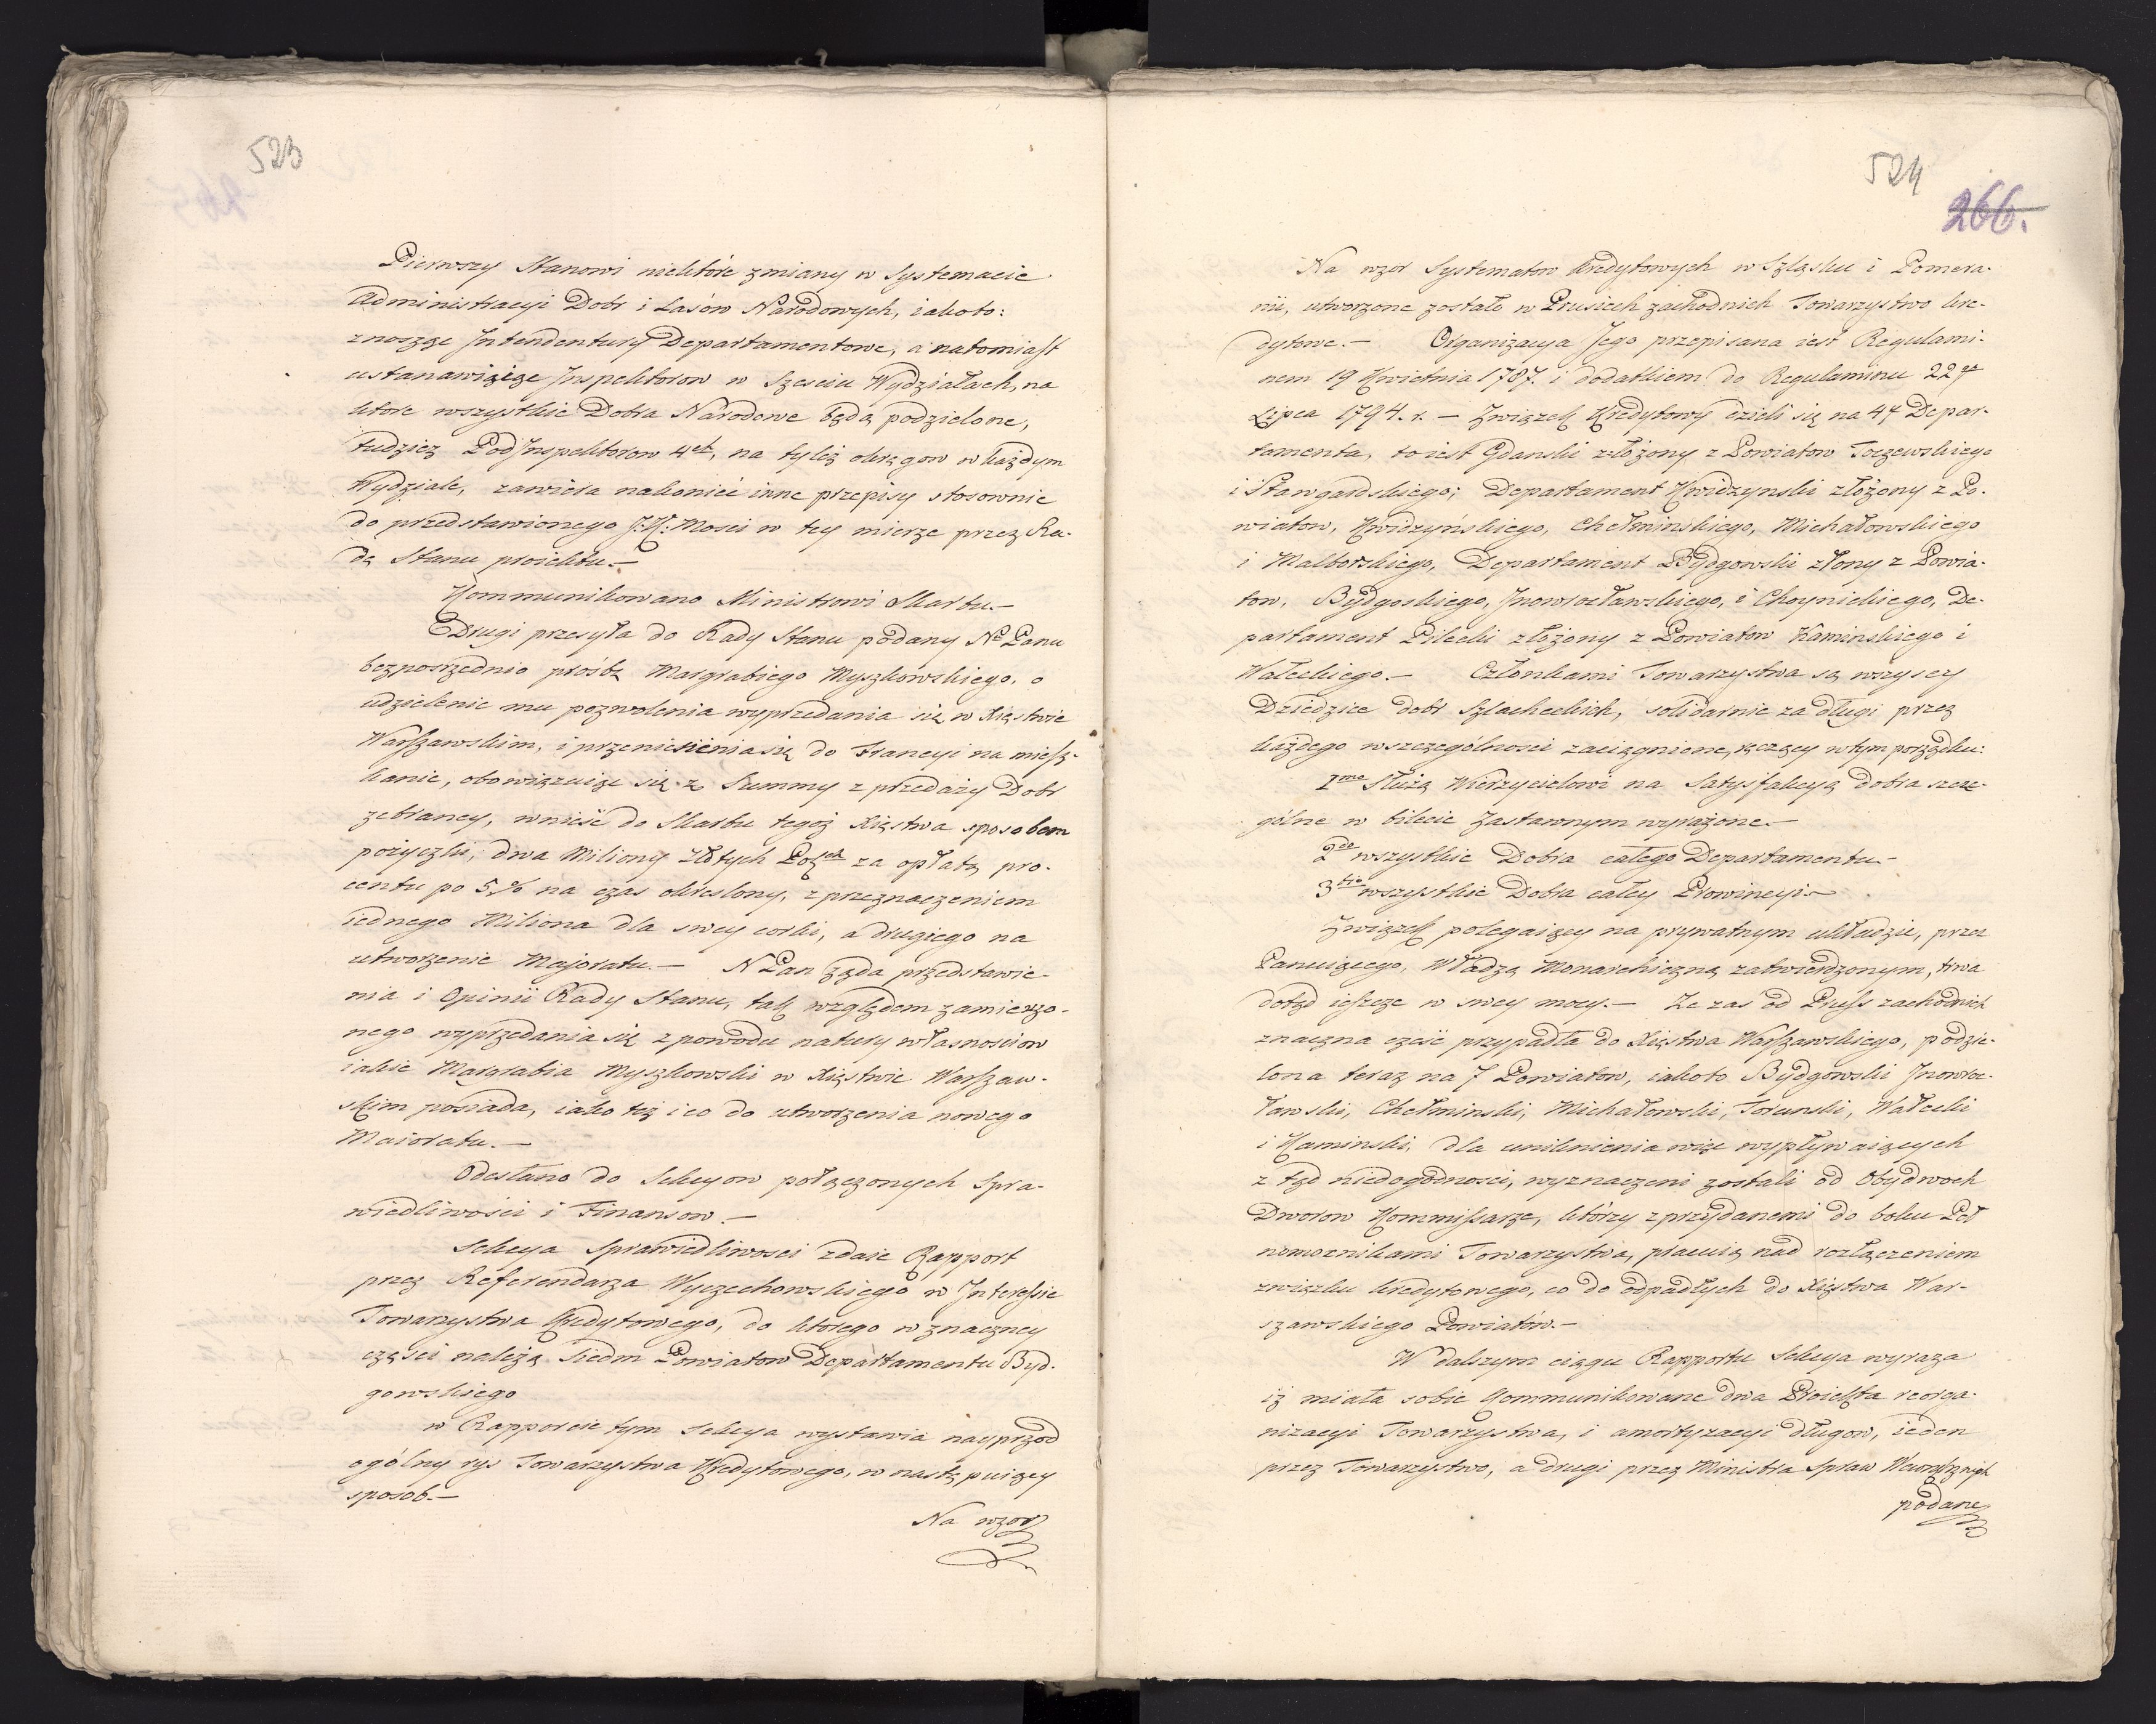 523
Pierwszy Stanowi niektóre zmiany w Systemacie
Administracyi Dobr i Lasów Narodowych, iakoto:
znosząc Intendentury Departamentowe, a natomiast
ustanawiaiąc Inspektorow w Sześciu Wydziałach, na
ktore wszystkie Dobra Narodowe będą podzielone,
tudzież PodInspektorow 4ch, na tyleż okręgow w każdym
Wydziale, zawiera nakonieć inne przepisy stosownie
do przedstawionego J. K. Mosci w tey mierze przez Ra-
dę Stanu proiektu.—
Kommunikowano Ministrowi Skarbu.—
Drugi przesyła do Rady Stanu podany Nu Panu
bezposrzednio prośbę Margrabiego Myszkowskiego, o
udzielenie mu pozwolenia wyprzedania się w Xięstwie
Warszawskim, i przeniesienia się do Francyi na miesz-
kanie, obowiązuiąc się z Summy z przedaży Dobr
zebraney, wnieść do Skarbu tegoż Xięstwa sposobem
pożyczki, dwa Miliony Złotych Polch za opłatą pro-
centu po 5% na czas okreslony, z przeznaczeniem
iednego Miliona dla swey corki, a drugiego na
utworzenie Majoratu.— N Pan żąda przedstawie-
nia i Opinii Rady Stanu, tak względem zamierzo-
nego wyprzedania się z powodu natury własnosciow
iakie Margrabia Myszkowski w Xięstwie Warszaw-
skim posiada, iako też i co do utworzenia nowego
Maioratu.—
Odesłano do Sekcyow połączonych Spra-
wiedliwości i Finansow.—
Sekcya Sprawiedliwosci zdaie Rapport
przez Referendarza Wyczechowskiego w Interessie
Towarzystwa Kredytowego, do ktorego w znaczney
części należą Siedm Powiatow Departamentu Byd-
gowskiego
w Rapporcie tym Sekcya wystawia nayprzod
ogólny rys Towarzystwa Kredytowego, w nastę puiący
sposob.—
Na wzor
524
266.
Na wzor Systematow Kredytowych w Szląsku i Pomera-
nii, utworzone zostało w Prusiech zachodnich Towarzystwo kre-
dytowe.— Organizacya Jego przepisana iest Regulami-
nem 19 Kwietnia 1787. i dodatkiem do Regulaminu 22go
Lipca 1794. r.— Związek Kredytowy dzieli się na 4y Depar-
tamenta, to iest Gdanski złożony z Powiatow Tczewskiego
i Stawgardskiego; Departament Kwidzynski złożony z Po-
wiatow, Kwidzyńskiego, Chełminskiego, Michałowskiego
i Malborskiego, Departament Bydgowski złony z Powia-
tow, Bydgoskiego, Jnowrocławskiego, i Choynickiego, De-
partament Pilecki złożony z Powiatow Kaminskiego i
Wałeckiego.— Członkami Towarzystwa są wszyscy
Dziedzice dobr Szlacheckich, solidarnie za długi przez
każdego wszczególnosci zaciągnione, ręczący w tym porządku:
1mo Służą Wierzycielowi na Satysfakcyą dobra szcze-
gólne w bilecie Zastawnym wyrażone.—
2do wszystkie Dobra całego Departamentu.—
3tio wszystkie Dobra całey Prowincyi.—
Związek polegaiący na prywatnym układzie, przez
Panuiącego, Władzą Monarchiczną zatwierdzonym, trwa
dotąd ieszcze w swey mocy.— Ze zas od Pruss zachodnich
znaczna część przypadła do Xięstwa Warszawskiego, podzie-
lona teraz na 7 Powiatow, iakoto Bydgowski Jnowroc-
ławski, Chełminski, Michałowski, Torunski, Wałecki
i Kaminski, dla uniknienia więc wypływaiących
z tąd niedogodnosci, wyznaczeni zostali od Obydwoch
Dworow Kommissarze, którzy z przydanemi do boku Peł
nomocnikami Towarzystwa, pracuią nad rozłączeniem
związku kredytowego, co do odpadłych do Xięstwa War-
szawskiego Powiatów.—
W dalszym ciągu Rapportu Sekcya wyraza
iż miała sobie Kommunikowane dwa Proiekta reorga-
nizacyi Towarzystwa, i amortyzacyi długow, ieden
przez Towarzystwo, a drugi przez Ministra Spraw Wewnętrznych
podane